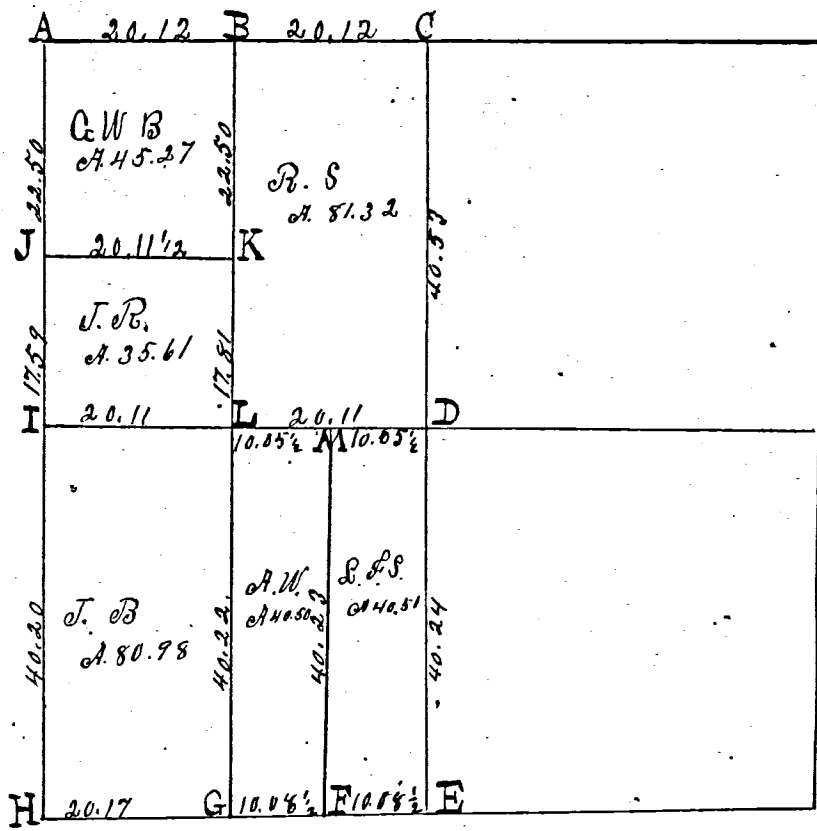 A 20.12 B 20.12 C
22.50
C. W B
A. 45.27
22.50
R. S
A. 81.32
40.53
J 20.11 1/2 K
17.59
J. R.
A. 35.61
17.81
I 20.11 L 20.11 D
10.05 1/2 M 10.05 1/2
40.20
J. B
A. 80.98
40.22
A. W.
A 40.50
40.23
L. F. S.
A 40.51
40.24
H 20.17 G 10.08 1/2 F 10.08 1/2 E